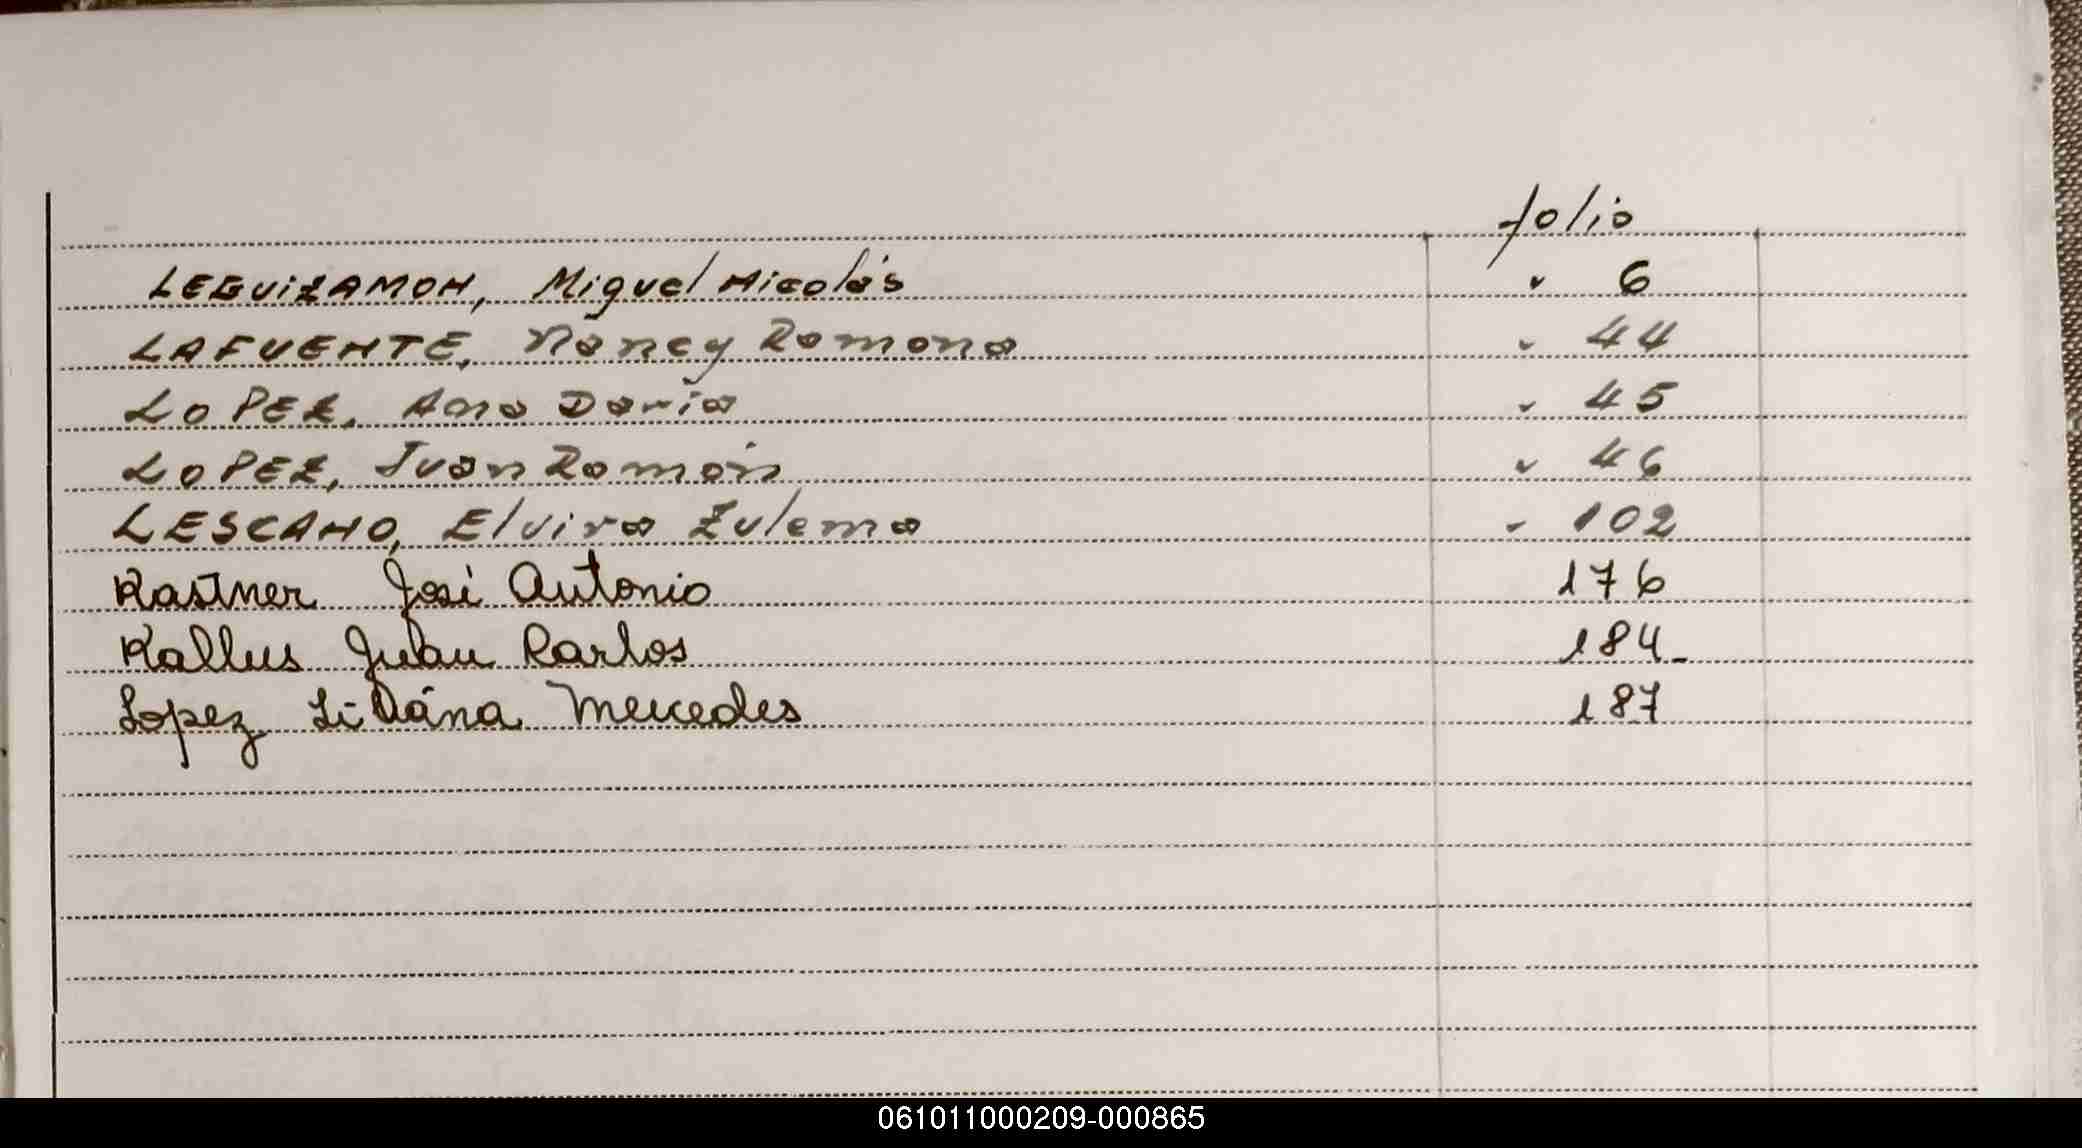 folio
LEGUIZAMON, Miguel Nicolás " 6
LAFUENTE, Nancy Ramona " 44
LOPEZ, Ana Daria " 45
LOPEZ, Juan Ramón " 46
LESCANO, Elvira Zulema " 102
Kastner José Antonio 176
Kallus Juan Carlos 184-
Lopez Liliána Mercedes 187
061011000209-000865